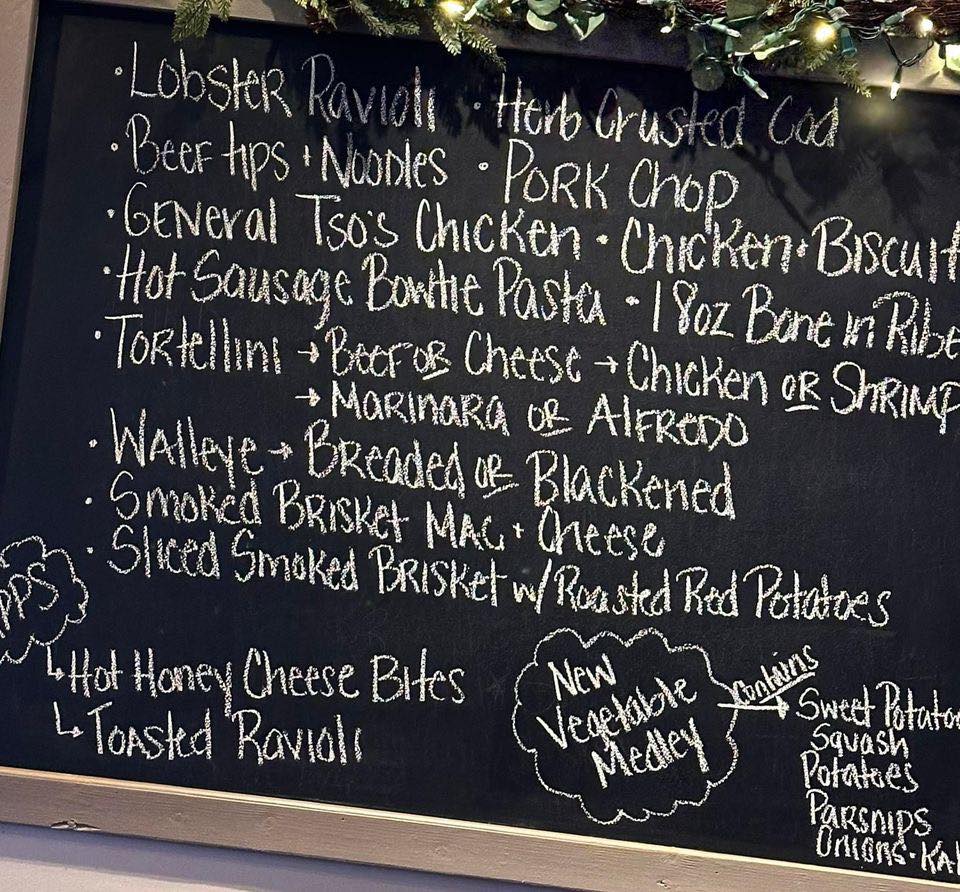 · Lobster Ravioli · Herb Crusted Cod
· Beef tips + Noodles · Pork Chop
· General Tso's Chicken · Chicken + Biscuit
· Hot Sausage Bowtie Pasta · 18oz Bone in Ribe
· Tortellini → Beef or Cheese → Chicken or Shrimp
→ Marinara or Alfredo
· Walleye → Breaded or Blackened
· Smoked Brisket Mac + Cheese
· Sliced Smoked Brisket w/ Roasted Red Potatoes
PPS
↳ Hot Honey Cheese Bites
↳ Toasted Ravioli
New
Vegetable
Medley
Contains
→ Sweet Potatoe
Squash
Potatoes
Parsnips
Onions · Kal